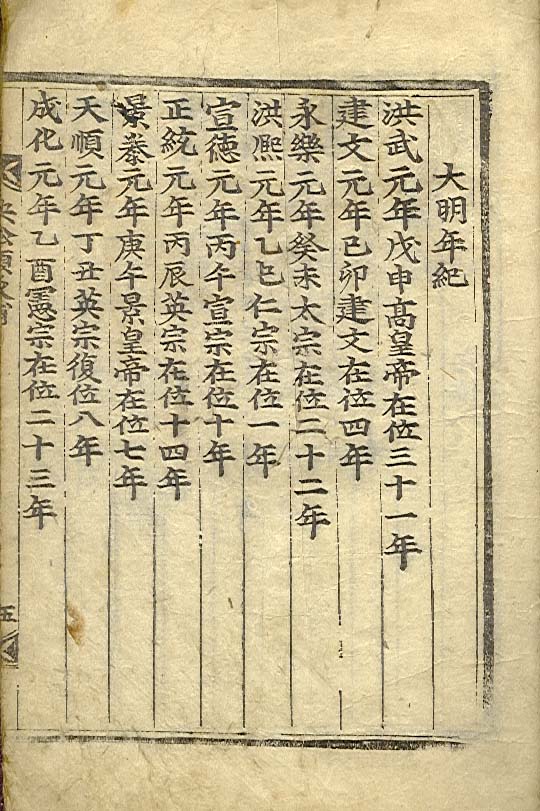 大明年紀
洪武元年戊申髙皇帝在位三十一年
建文元年己卯建文在位四年
永樂元年癸未太宗在位二十二年
洪熈元年乙巳仁宗在位一年
宣徳元年丙午宣宗在位十年
正統元年丙辰英宗在位十四年
景泰元年庚午景皇帝在位七年
天順元年丁丑英宗復位八年
成化元年乙酉憲宗在位二十三年
五